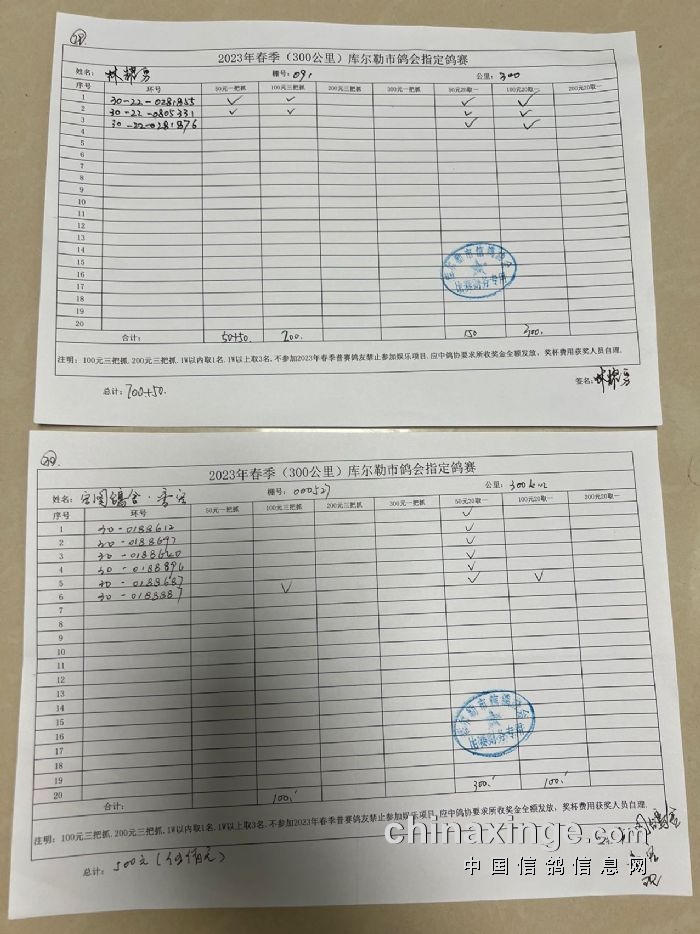 28.
2023年春季（300公里）库尔勒市鸽会指定鸽赛
姓名： 林耀勇 棚号：091 公里：300
序号 环号 50元一把抓 100元三把抓 200元三把抓 300元一把抓 50元20取一 100元20取一 200元20取一
1 30-22-0281855 ✓ ✓ ✓ ✓
2 30-22-0805331 ✓ ✓ ✓ ✓
3 30-22-0281876 ✓ ✓
4
5
6
7
8
9
10
11
12
13
14
15
16
17
18
19
20
合计： 50+50. 200. 150 300.
注明：100元三把抓.200元三把抓.1W以内取1名.1W以上取3名.不参加2023年春季普赛鸽友禁止参加娱乐项目.应中鸽协要求所收奖金全额发放，奖杯费用获奖人员自理.
总计：700+50. 签名：林耀勇
库尔勒市信鸽协会
比赛财务专用
29.
2023年春季（300公里）库尔勒市鸽会指定鸽赛
姓名： 棚号：000527 公里：300km
序号 环号 50元一把抓 100元三把抓 200元三把抓 300元一把抓 50元20取一 100元20取一 200元20取一
1 30-0188612 ✓
2 30-0188647 ✓
3 30-0188620 ✓
4 30-0188896 ✓
5 30-0188687 ✓
6 30-0188887 ✓ ✓ ✓
7
8
9
10
11
12
13
14
15
16
17
18
19
20
合计： 100. 300. 100.
注明：100元三把抓.200元三把抓.1W以内取1名.1W以上取3名.不参加2023年春季普赛鸽友禁止参加娱乐项目.应中鸽协要求所收奖金全额发放，奖杯费用获奖人员自理.
总计：500元（伍佰元）
库尔勒市信鸽协会
比赛财务专用
chinaxinge.com
中国信鸽信息网